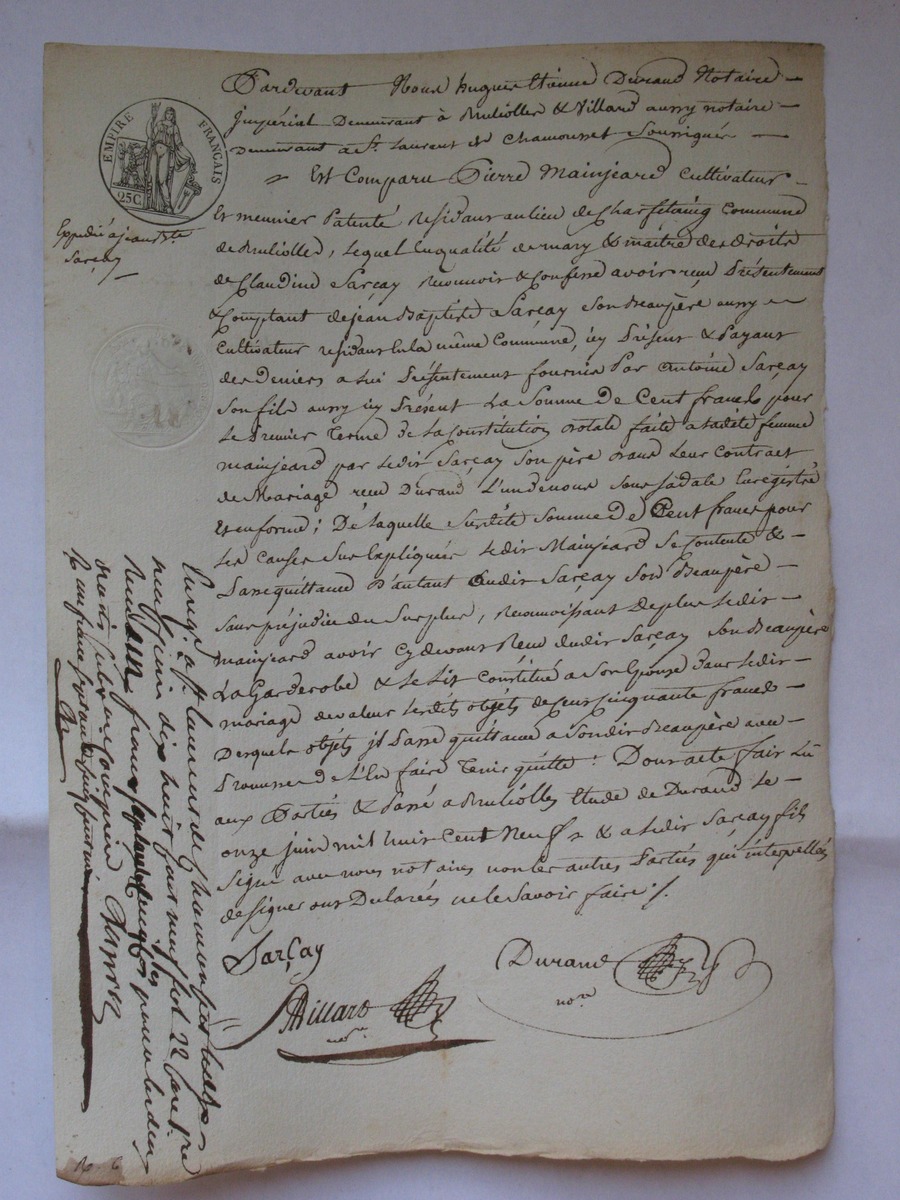 EMPIRE FRANÇAIS
25C.
Expédié à jean Bte
Sarçay
Pardevant Nous hugues Etienne Durand Notaire
jmpérial Demeurant à Bruliolles & Villard aussy notaire
Demeurant a St. Laurent de Chamousset Soussignés
Est Comparu Pierre Mainjeard Cultivateur
Et meunier Patenté residant au lieu de commune
de Bruliolles, lequel Enqualité de mary & maître des droits
de Claudine Sarçay Reconnoit & Confesse avoir reçu Présentement
& Comptant de jean Baptiste Sarçay Son Beaupère aussy
Cultivateur residant En la même Commune, icy Présent & Payant
des Deniers a lui Présentement fournis Par Antoine Sarçay
Son fils aussy icy Présent La Somme de Cent francs pour
Le Premier Terme de La Constitution dotale faite a ladite femme
mainjeard par ledit Sarçay Son père dans Leur Contract
de Mariage reçu Durand L'un de nous Sous sa date Enregistré
Et en forme ; De laquelle Susdite Somme de Cent francs pour
Les Causes Sus Expliquées Ledit Mainjeard Se Contente &
Passe quittance D'autant Audit Sarçay Son Beaupère
Sans préjudice du Surplus, Reconnoissant De plus Ledit
mainjeard avoir Cy devant Reçu dudit Sarçay Son Beaupère
La Garderobe & Le Lit Constitué a Son Epouse dans Ledit
mariage de valeur Lesdits objets de Cent Cinquante francs
Desquels objets jl Passe quittance a Sondit Beaupère avec
Promesse de L'En faire Tenir quitte : Dont acte fait Lû
aux Parties & Passé a Bruliolles Etude de Durand Le
onze juin mil huit Cent Neuf & a Ledit Sarçay fils
Signé avec nous notaires non les autres Parties qui interpellées
de Signer ont Déclarées ne le Savoir faire ./.
Sarçay
Durand
nore
Villard
nore
Enregé. a St Laurent de Chamousset le dix
neuf juin dix huit cent neuf fol 22 Care 1re
Reçu un franc